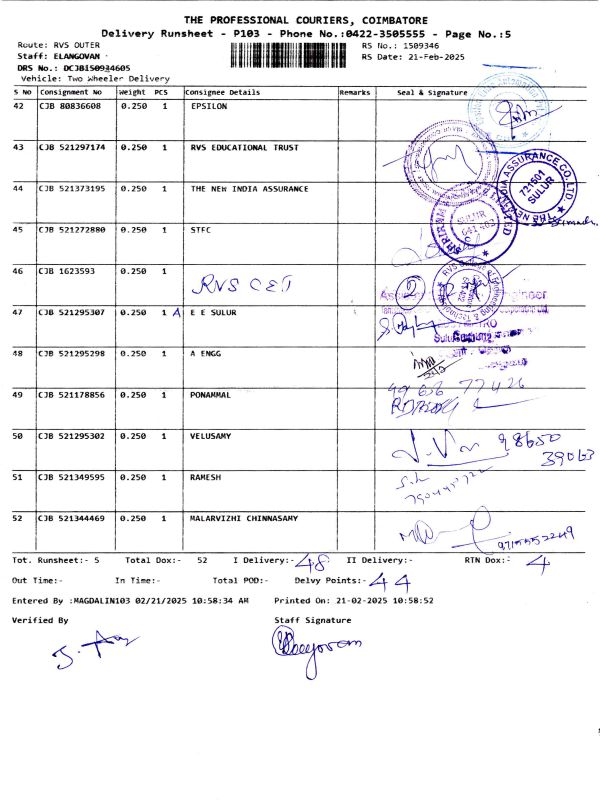 THE PROFESSIONAL COURIERS, COIMBATORE
Delivery Runsheet - P103 - Phone No.:0422-3505555 - Page No.:5
Route: RVS OUTER RS No.: 1509346
Staff: ELANGOVAN RS Date: 21-Feb-2025
DRS No.: DCJB150934605
Vehicle: Two Wheeler Delivery
S No Consignment No Weight PCS Consignee Details Remarks Seal & Signature
42 CJB 80836608 0.250 1 EPSILON
43 CJB 521297174 0.250 1 RVS EDUCATIONAL TRUST
44 CJB 521373195 0.250 1 THE NEW INDIA ASSURANCE
INDIA ASSURANCE CO.LTD.
721601
SULUR
45 CJB 521272880 0.250 1 STFC
SULUR
641 402
46 CJB 1623593 0.250 1 RVS CET
2
47 CJB 521295307 0.250 1 A E E SULUR
48 CJB 521295298 0.250 1 A ENGG
49 CJB 521178856 0.250 1 PONAMMAL
50 CJB 521295302 0.250 1 VELUSAMY
98650
39063
51 CJB 521349595 0.250 1 RAMESH
52 CJB 521344469 0.250 1 MALARVIZHI CHINNASAMY
Tot. Runsheet:- 5 Total Dox:- 52 I Delivery:- 48 II Delivery:- RTN Dox:- 4
Out Time:- In Time:- Total POD:- Delvy Points:- 44
Entered By :MAGDALIN103 02/21/2025 10:58:34 AM Printed On: 21-02-2025 10:58:52
Verified By Staff Signature